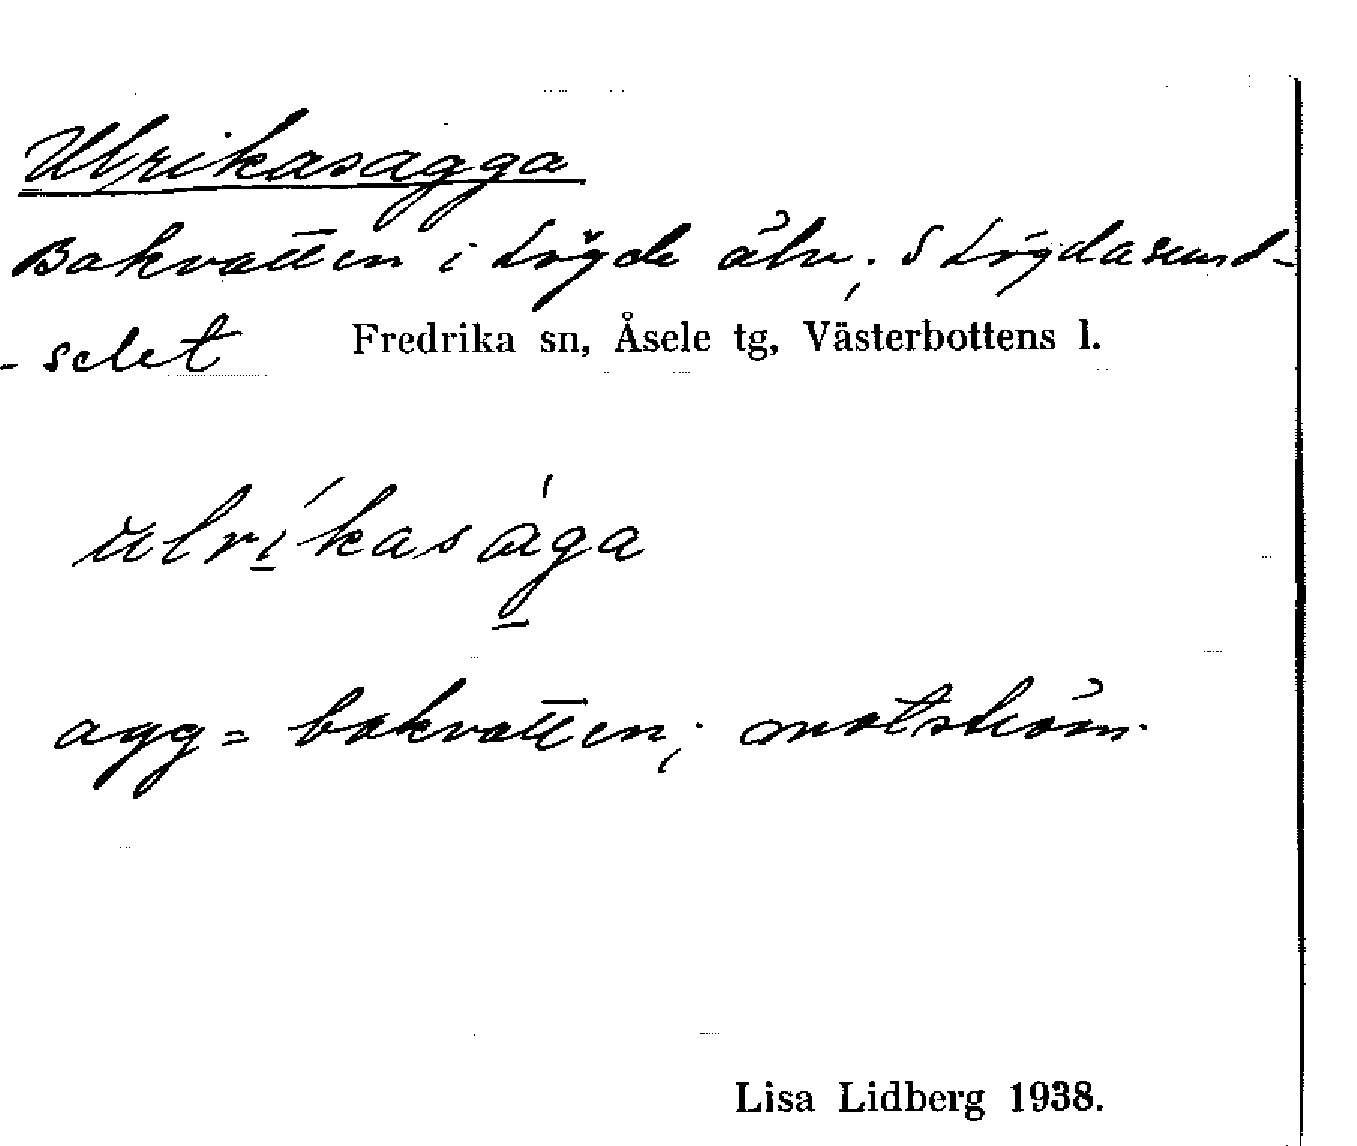 Ulrikasagga
Bakvatten i Lögde älv; S Lögdasund-
- selet Fredrika sn, Åsele tg, Västerbottens l.
ulríkasága
agg = bakvatten; motström.
Lisa Lidberg 1938.